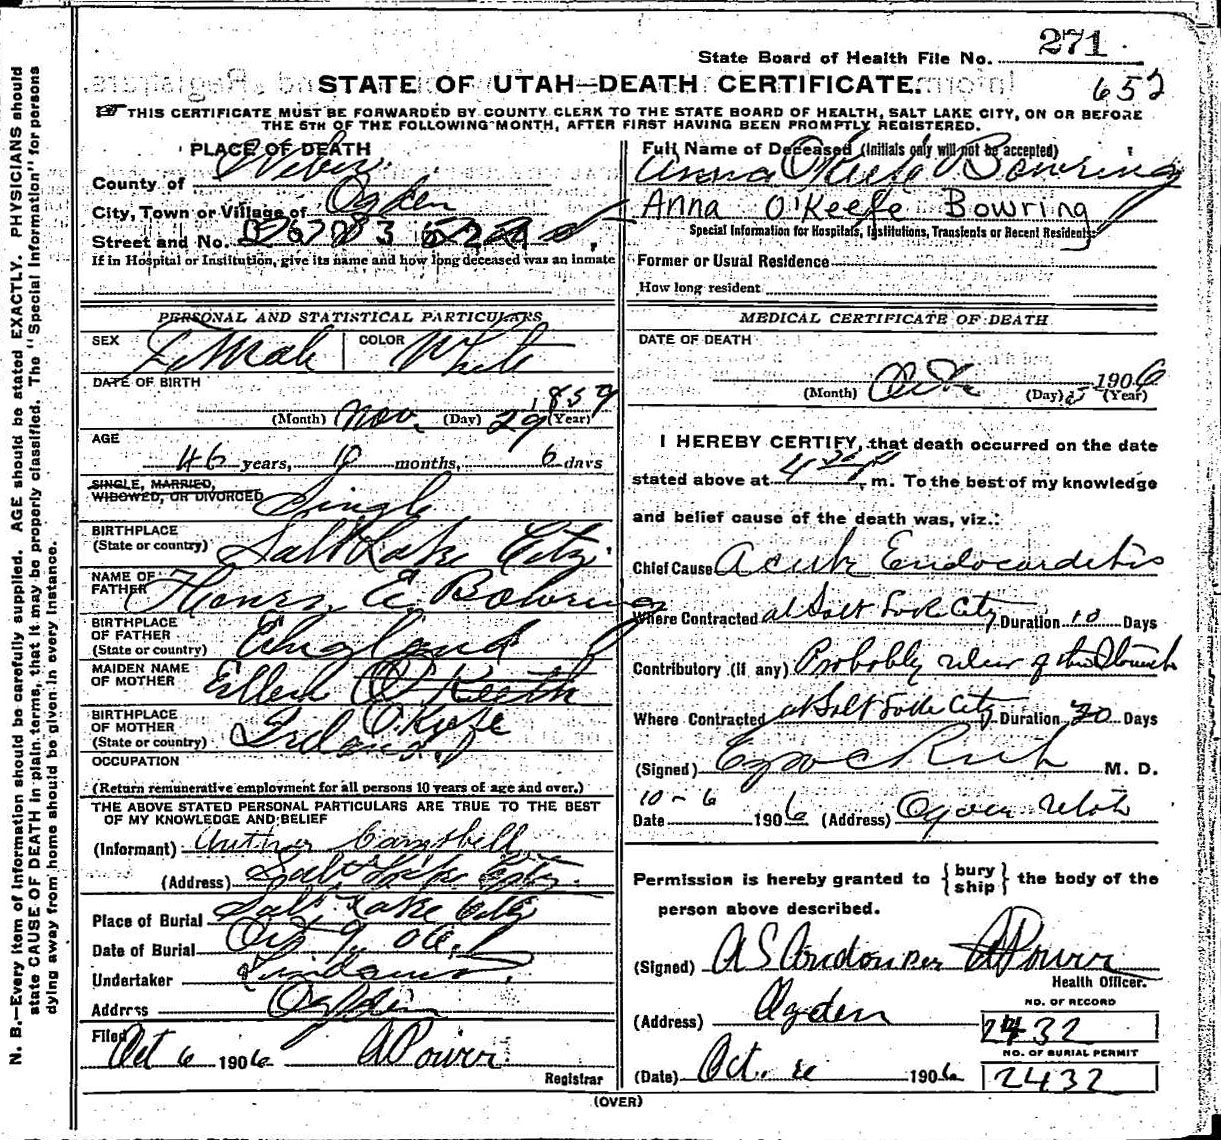 State Board of Health File No. 271
STATE OF UTAH—DEATH CERTIFICATE.
652
THIS CERTIFICATE MUST BE FORWARDED BY COUNTY CLERK TO THE STATE BOARD OF HEALTH, SALT LAKE CITY, ON OR BEFORE
THE 5TH OF THE FOLLOWING MONTH, AFTER FIRST HAVING BEEN PROMPTLY REGISTERED.
PLACE OF DEATH
County of Weber
City, Town or Village of Ogden
Street and No.
If in Hospital or Institution, give its name and how long deceased was an inmate
PERSONAL AND STATISTICAL PARTICULARS
SEX Female COLOR White
DATE OF BIRTH
(Month) Nov. (Day) 29 1859 (Year)
AGE
46 years, 10 months, 6 days
SINGLE, MARRIED,
WIDOWED, OR DIVORCED Single
BIRTHPLACE
(State or country) Salt Lake City
NAME OF
FATHER Henry E. Bowring
BIRTHPLACE
OF FATHER
(State or country) England
MAIDEN NAME
OF MOTHER Ellen O'Keeth
O'Keefe
BIRTHPLACE
OF MOTHER
(State or country) Ireland
OCCUPATION
(Return remunerative employment for all persons 10 years of age and over.)
THE ABOVE STATED PERSONAL PARTICULARS ARE TRUE TO THE BEST
OF MY KNOWLEDGE AND BELIEF
(Informant) Campbell
(Address) Salt Lake City
Place of Burial Salt Lake City
Date of Burial Oct 9, 06.
Undertaker
Address Ogden
Filed Oct 6 1906
Registrar
Full Name of Deceased (Initials only will not be accepted)
Anna O'Keefe Bowring
Anna O'Keefe Bowring
Special Information for Hospitals, Institutions, Transients or Recent Residents:
Former or Usual Residence
How long resident
MEDICAL CERTIFICATE OF DEATH
DATE OF DEATH
(Month) Oct (Day) 5 1906 (Year)
I HEREBY CERTIFY, that death occurred on the date
stated above at 4 30 P m. To the best of my knowledge
and belief cause of the death was, viz.:
Chief Cause Acute Endocarditis
Where Contracted at Salt Lake City Duration 10 Days
Contributory (if any) Probably ulcer of the Stomach
Where Contracted at Salt Lake City Duration 20 Days
(Signed) Ezra C Rich M. D.
10-6
Date 1906 (Address) Ogden Utah
Permission is hereby granted to {bury ship} the body of the
person above described.
(Signed)
Health Officer.
(Address) Ogden
NO. OF RECORD
2432
NO. OF BURIAL PERMIT
2432
(Date) Oct. 6 1906
(OVER)
N. B.—Every item of information should be carefully supplied. AGE should be stated EXACTLY. PHYSICIANS should
state CAUSE OF DEATH in plain terms, that it may be properly classified. The "Special Information" for persons
dying away from home should be given in every instance.